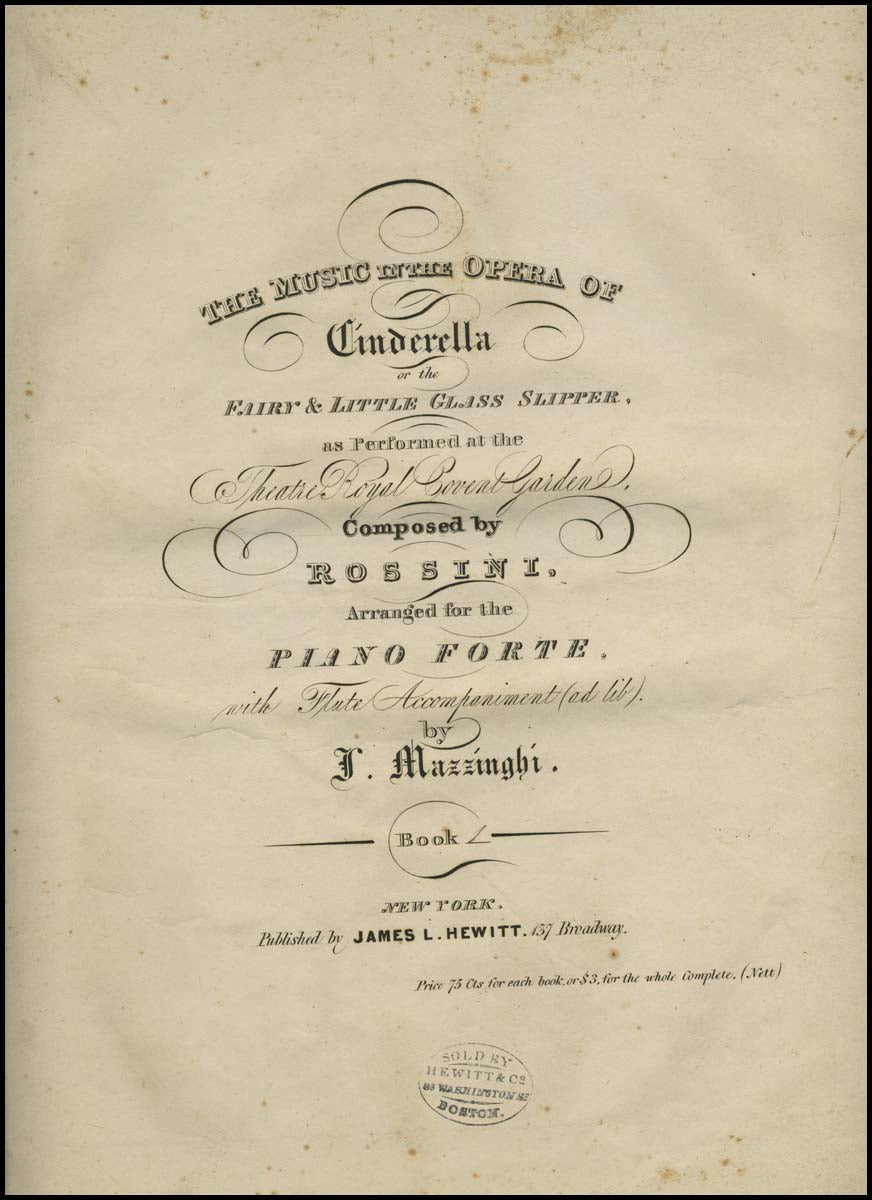 THE MUSIC IN THE OPERA OF
Cinderella
or the
FAIRY & LITTLE GLASS SLIPPER,
as Performed at the
Theatre Royal Covent Garden,
Composed by
ROSSINI,
Arranged for the
PIANO FORTE,
with Flute Accompaniment (ad lib).
by
J. Mazzinghi.
Book 1
NEW YORK.
Published by JAMES L. HEWITT. 137 Broadway.
Price 75 Cts for each book, or $3, for the whole Complete. (Nett)
SOLD BY
HEWITT & Co
WASHINGTON St
BOSTON.